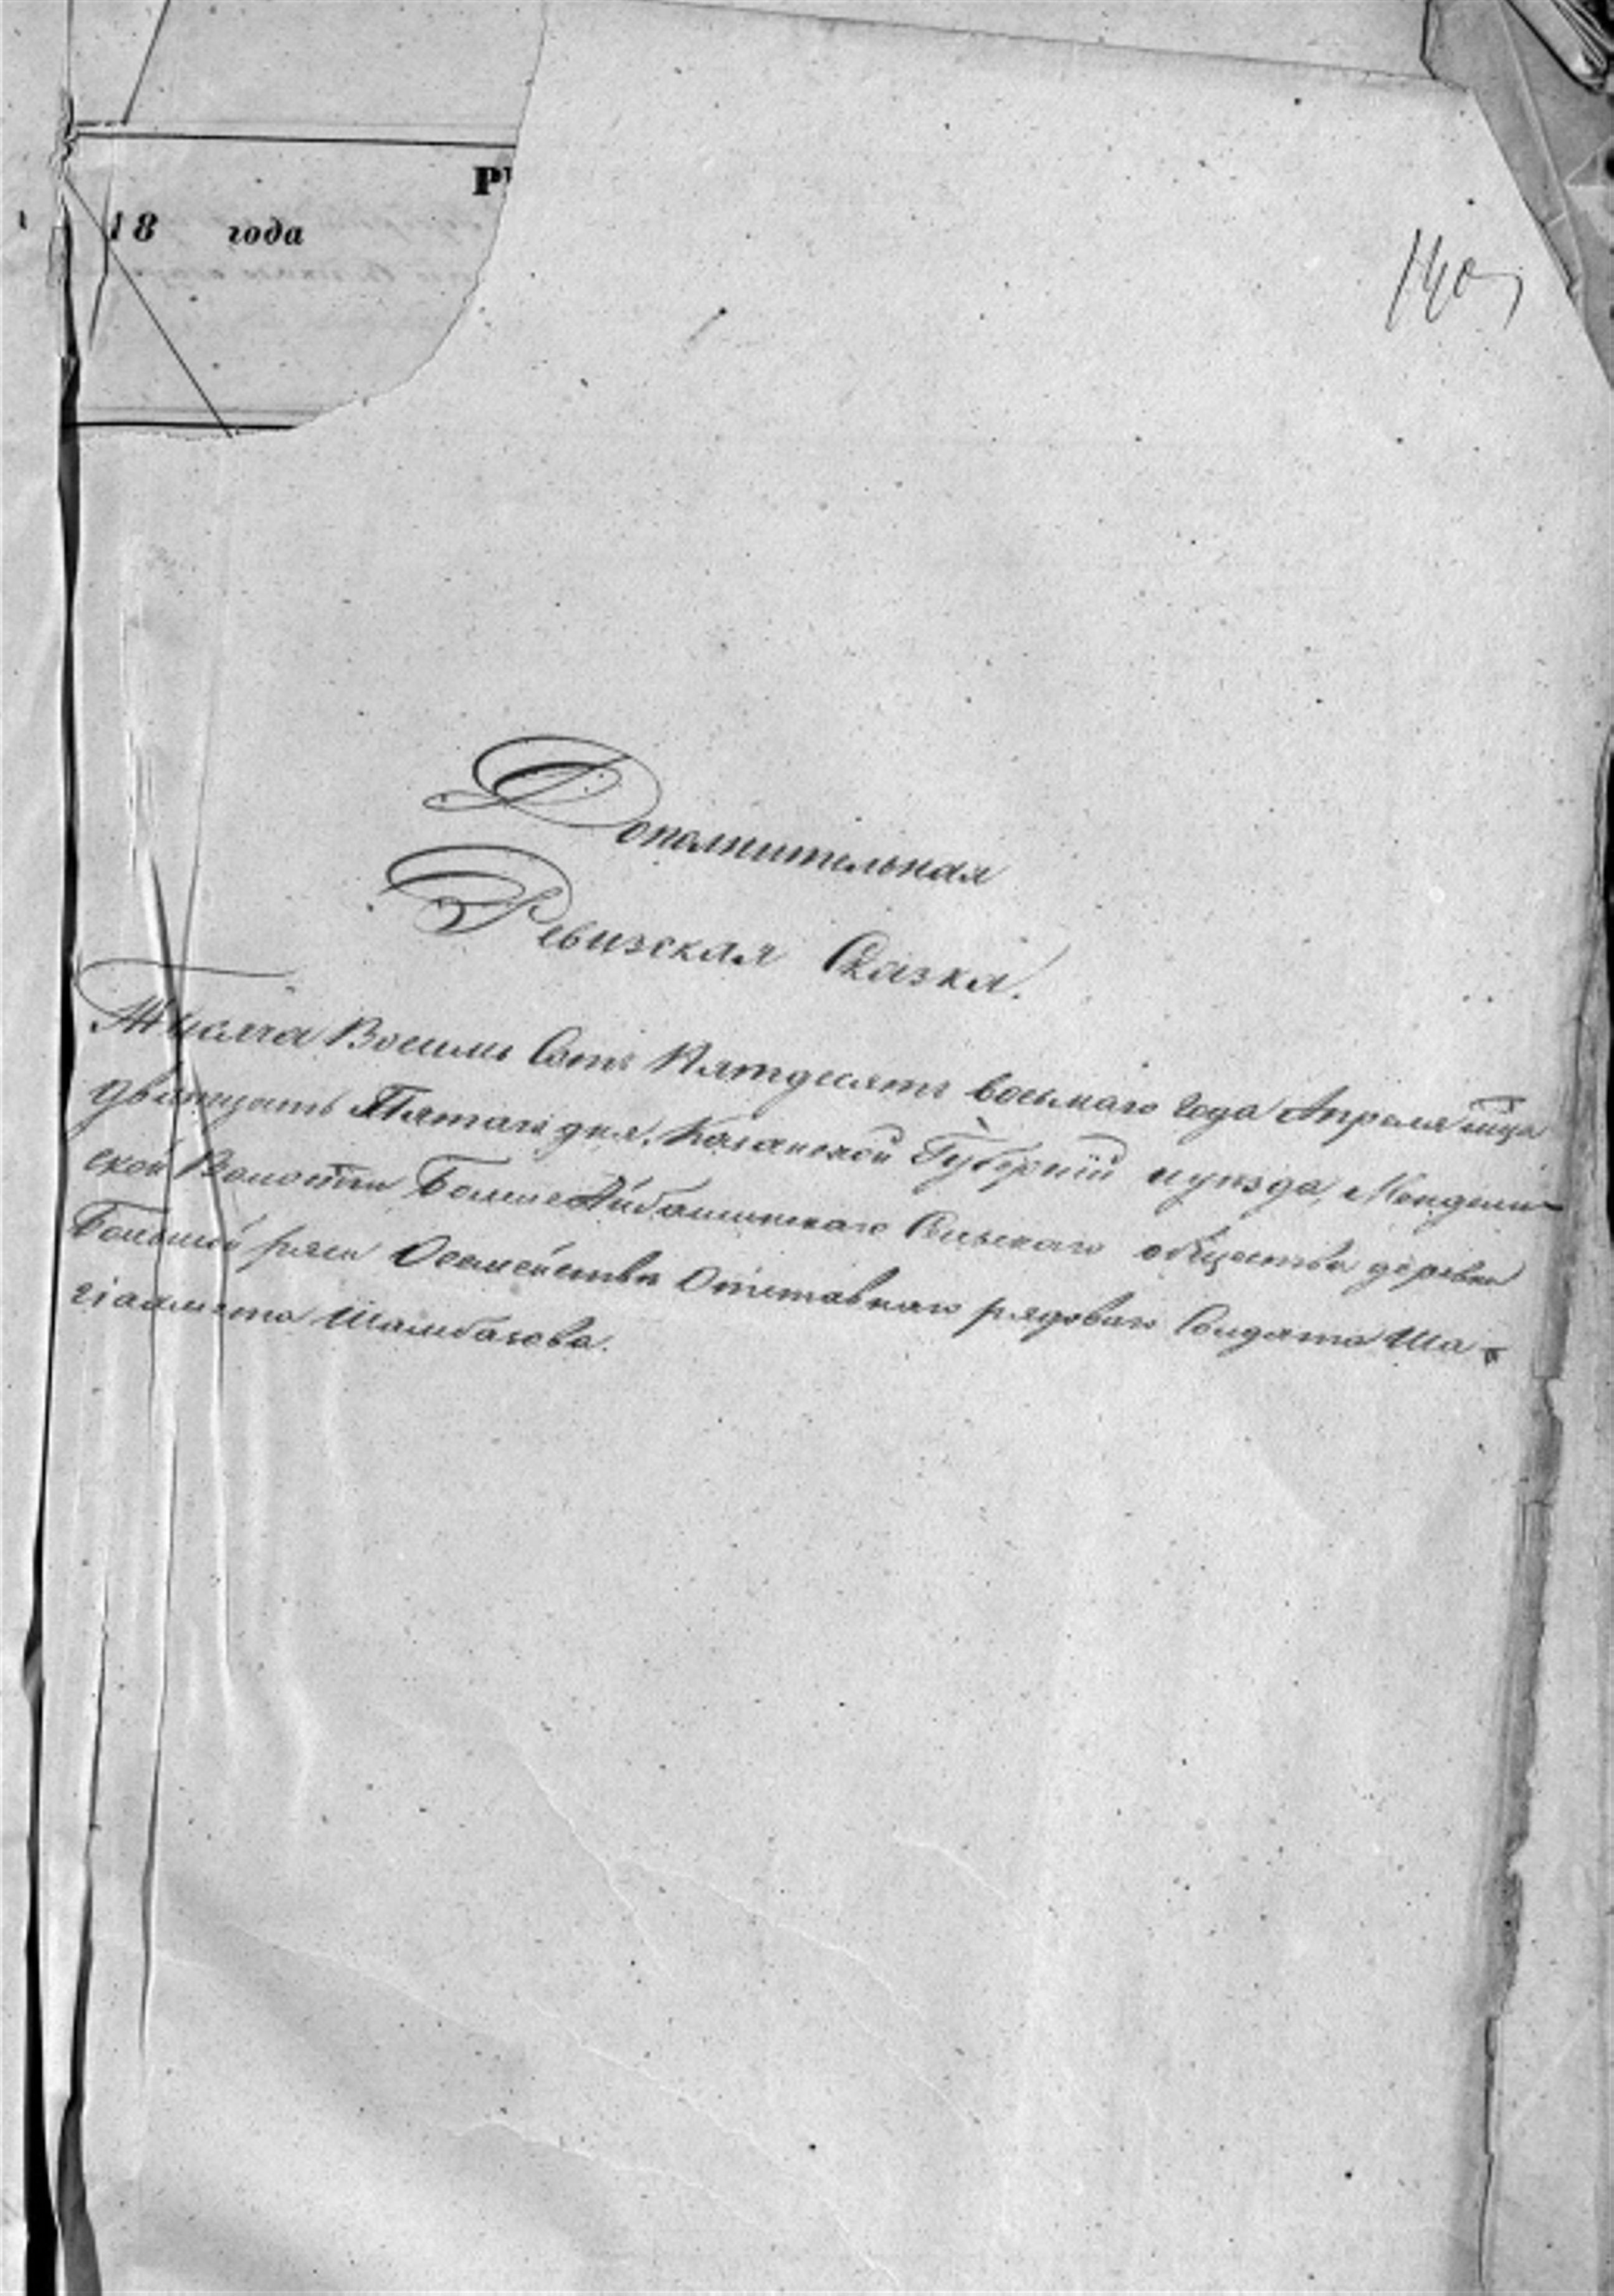 18 года
140
Дополнительная
Ревизская Сказка.
Тысяча Восемь Сотъ Пятдесятъ восьмаго года Апреля мца
дватцать Пятаго дня, Казанской Губернiи и уезда, Мендели-
ской Волости Больше Айбашинскаго Сельскаго общества деревни
Большой О семействе Отставнаго рядоваго Солдата Ша-
гiахмета Шамбазова.